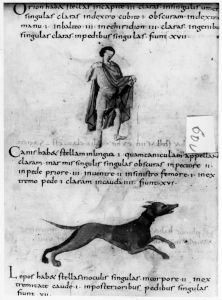 Orion habet stellas incapite in singulis umeris
singulas claras indextro cubito i obscuram indextra
manu i inbalteo iii
singulas claras inpedibus singulas fiunt xvii
Canis habet stellam inlingua i quam caniculam appellant
claram
inpede priore iii inuentre ii insinistro femore i inex
tremo pede i claram incauda iiii fiunt xvi
149
Lepus habet stellas inoculis singulas incorpore ii inex
tremitate caudę i inposterioribus pedibus singulas
fiunt vii